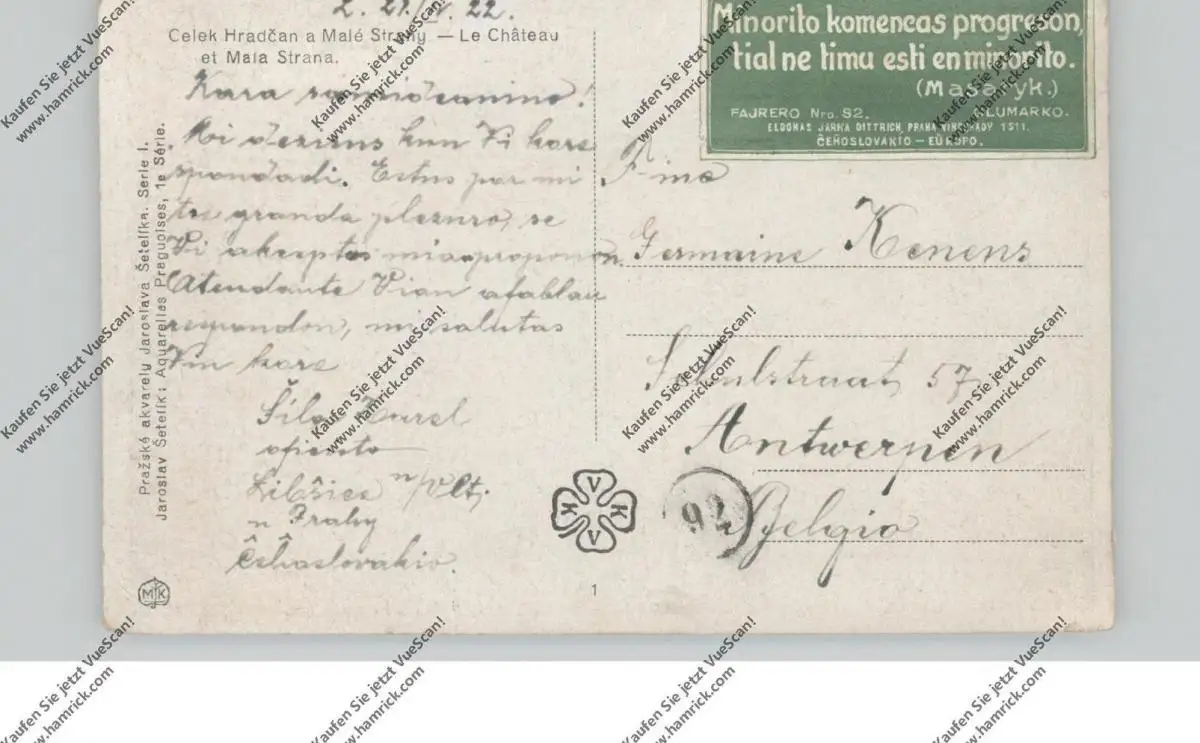 22.
Celek Hradčan a Malé Strany — Le Château
et Mala Strana.
Pražské akvarely Jaroslava Šetelíka. Serie I.
Jaroslav Šetelík: Aquarelles Praguoises, 1e Série.
Minorito komencas progreson,
tial ne timu esti en minorito.
(Masaryk.)
FAJRERO Nro. 92. GLUMARKO.
ELDONAS JARKA DITTRICH, PRAHA VINOHRADY 1511.
ĈEĤOSLOVAKIO — EUROPO.
Kara samideanino!
Mi dezirus kun Vi kore
spondadi. Estus por mi
tre granda plezuro, se
Vi akceptos mian proponon.
Atendante Vian afablan
respondon, mi salutas
Vin kore
Karel
oficisto
Libšice n/Vlt.
u Prahy
Ĉeĥoslovakio.
F-ino
Germaine Kenens
Schulstraat, 57,
Antwerpen
Belgio
V K V K
92
MJK
1
Kaufen Sie jetzt VueScan!
www.hamrick.com